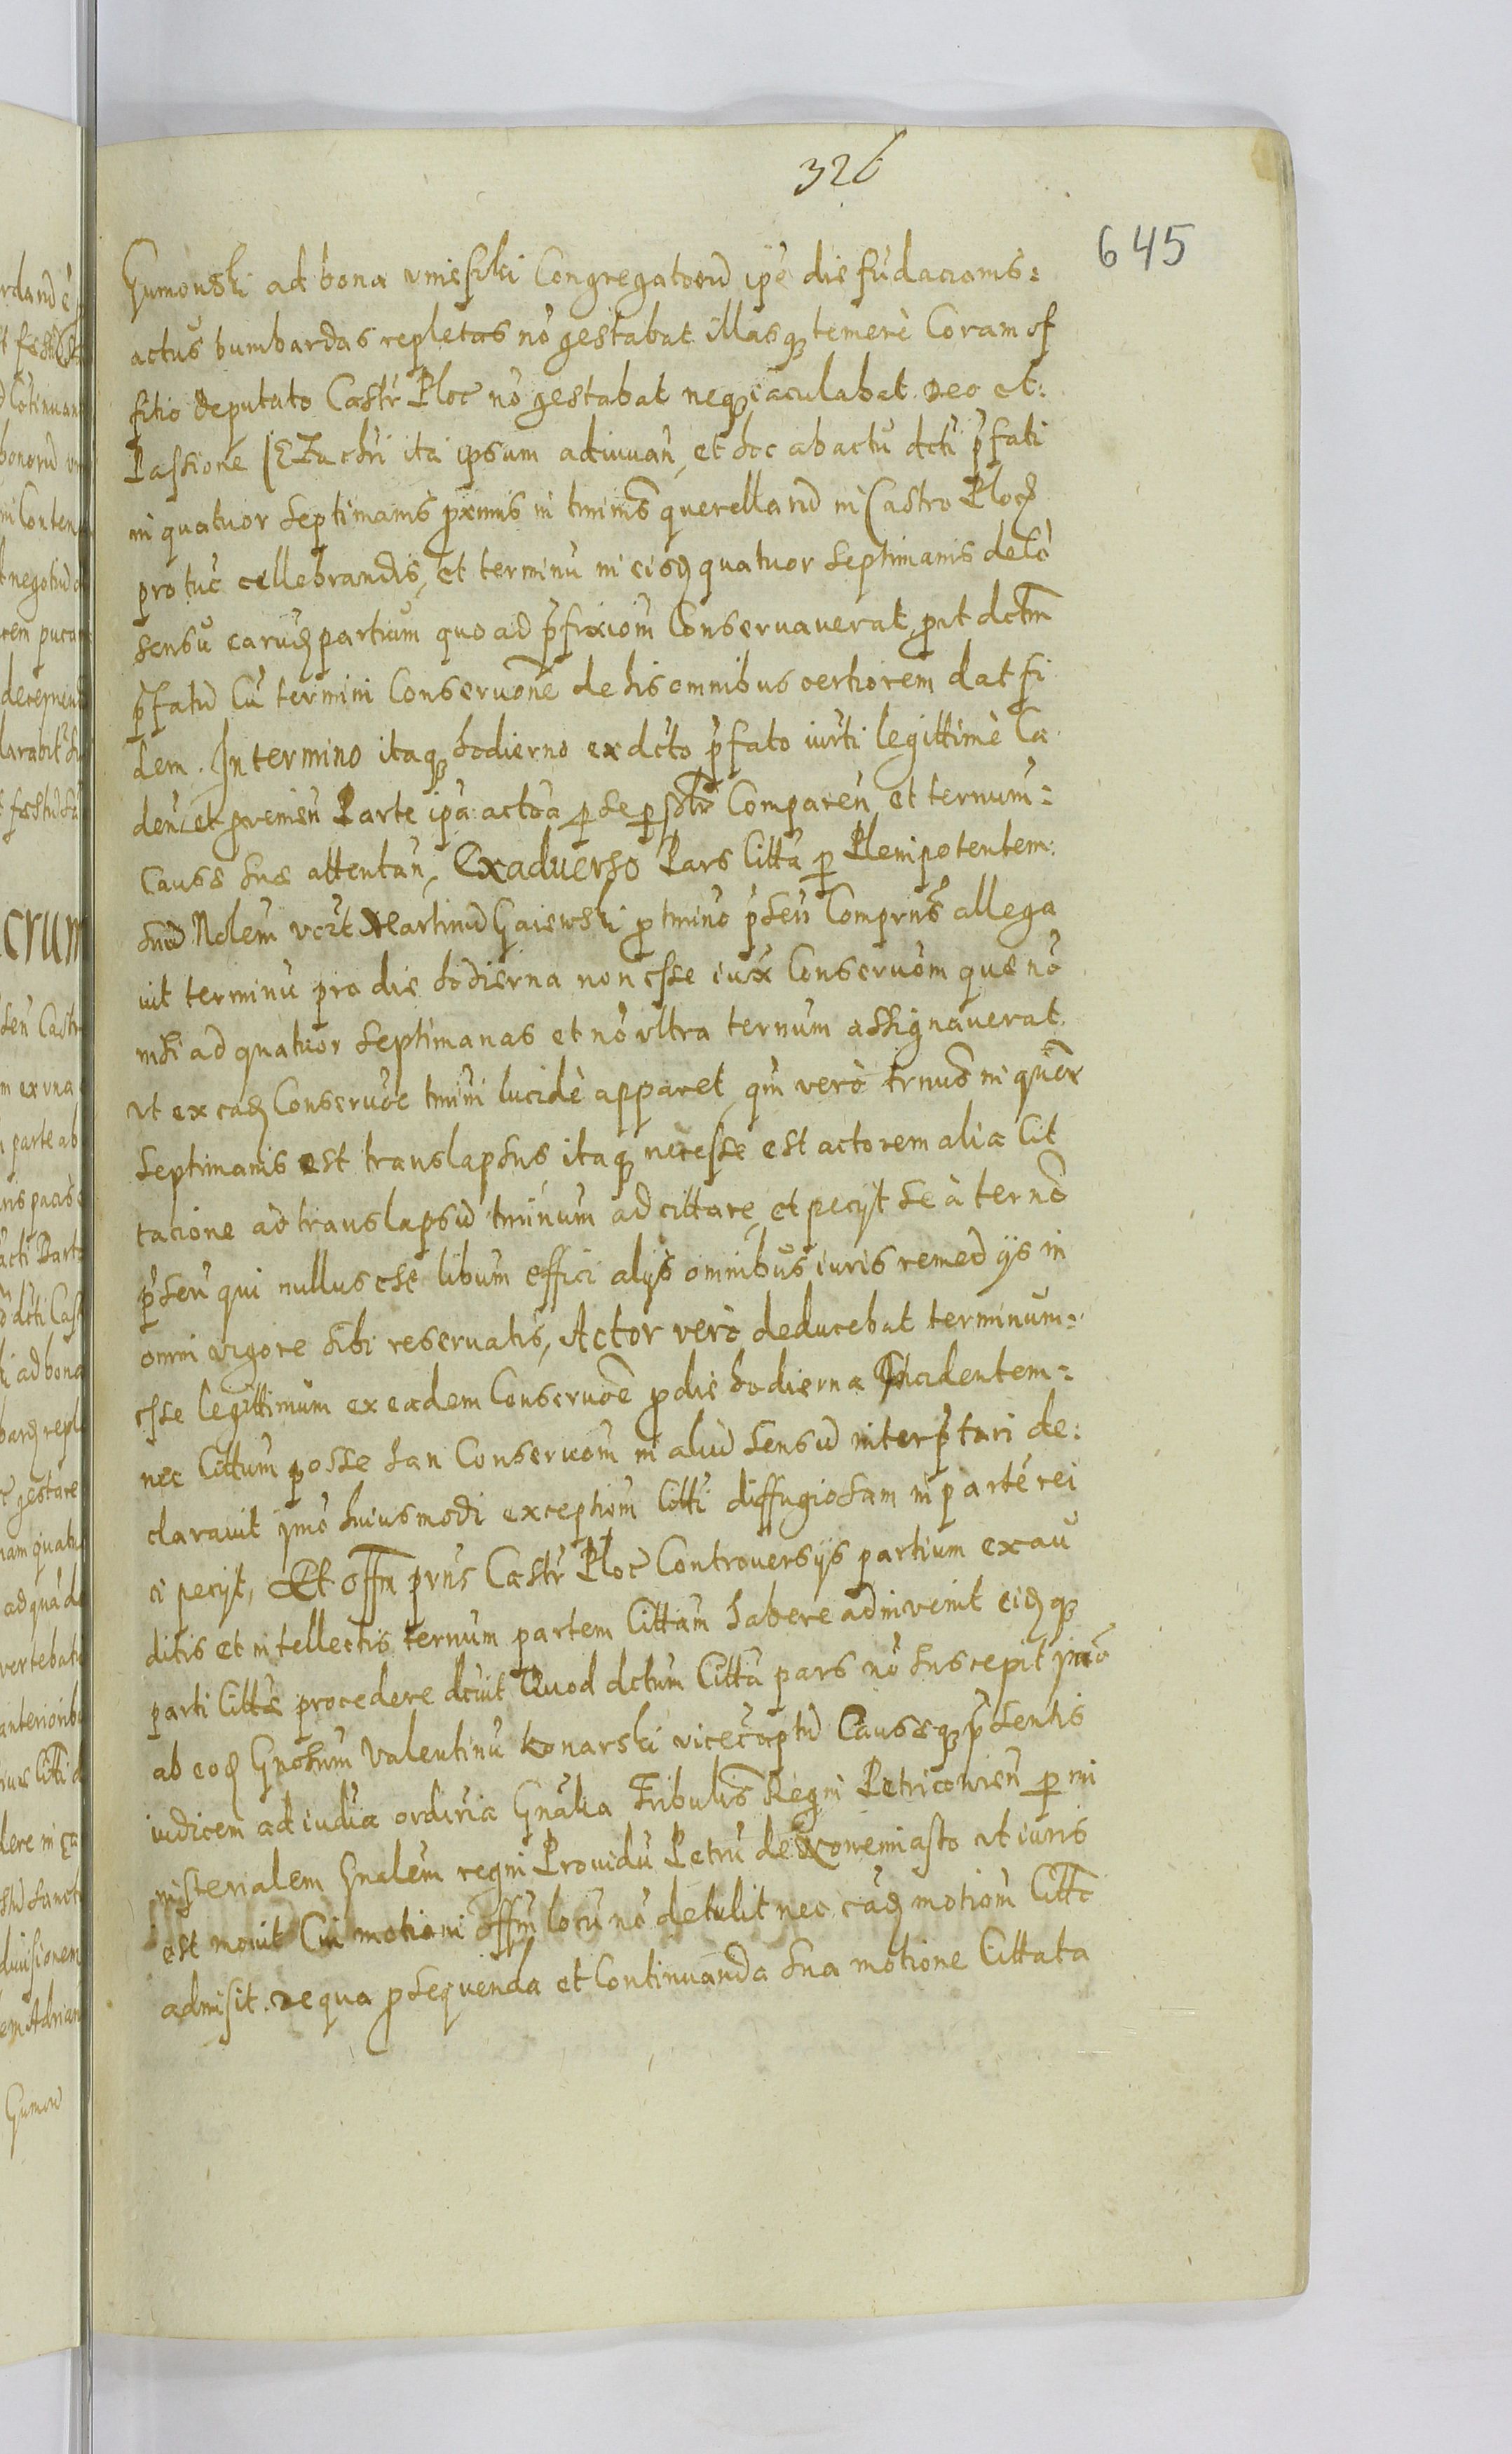 326
645
Gumowski ad bona vniesski Congregatorū ipē die fūdacionis:
actus bumbardas repletas nō gestabat illasq temerè Coram of
fitio deputato Castr Ploc nō gestabat neq iaculabat Deo et:
Passione IEZu chri ita ipsum adiuuan, et hoc ab actu dcti p̄fati
in quatuor septimanis pximis in tminis querellarū in Castro Ploc
pro tūc cellebrandis, et terminū in eisd quatuor septimanis de cō
sensū earūd partium quo ad p̄fixiom Conservaverat prt dctm
p̄fatū Cū termini Conservone de his omnibus certiorem dat fi
dem. In termino itaq hodierno ex dcto p̄fato iurti legittimè Ca
den et prenien Parte ipa actoa p se psōtr Comparen et ternum:
causæ suæ attentan, Ex adverso Pars Citta p Plenipotentem:
suū Nolem vcit Martinū Gaiewski p tmino p̄sen Comprns allega
vit terminū pro die hodierna non esse iux Conservom quæ nō
nisi ad quatuor septimanas et nō vltra ternum assignaverat
vt ex ead Conservōe tmini lucidè apparet, qui verò trnus in quer
septimanis est translapsus, itaq necesse est actorem alia Cit
tacione ad translapsū tminum adcittare, et pecijt se à terno
p̄sen qui nullus esse libum effici alijs omnibus iuris remedijs in
omni vigore sibi reservatis, Actor verò deducebat terminum:
esse legittimum ex eadem Conservōe p die hodierna Incidentem:
nec Cittum posse han Conservom in aliū sensū interp̄tari de:
claravit ymo huiusmodi exceptiom Citti diffugiosam in partē rei
ci pecijt, Et Offm prns Castr Ploc Controversijs partium exau
ditis et intellectis ternum partem Cittam habere adinvenit eidq
parti Cittæ procedere dcivit Quod dctum Citta pars nō suscepit ymo
ab eod Gnosum Valentinū Konarski vicecaptū Causæq p̄sentis
iudicem ad iudia ordiria Gnalia Tribulis Regni Petricovien p mi
nisterialem Gnalem regni Providū Petrū de Xoniemiasto vt iuris
est movit Cui motioni offm locū nō detulit nec eād motiom Citte
admisit. De qua psequenda et Continuanda sua motione Cittata